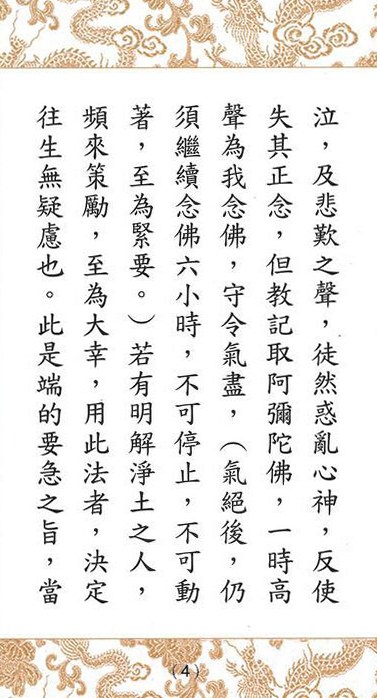 泣，及悲歎之聲，徒然惑亂心神，反使
失其正念，但教記取阿彌陀佛，一時高
聲為我念佛，守令氣盡，（氣絕後，仍
須繼續念佛六小時，不可停止，不可動
著，至為緊要。）若有明解淨土之人，
頻來策勵，至為大幸，用此法者，決定
往生無疑慮也。此是端的要急之旨，當
（4）